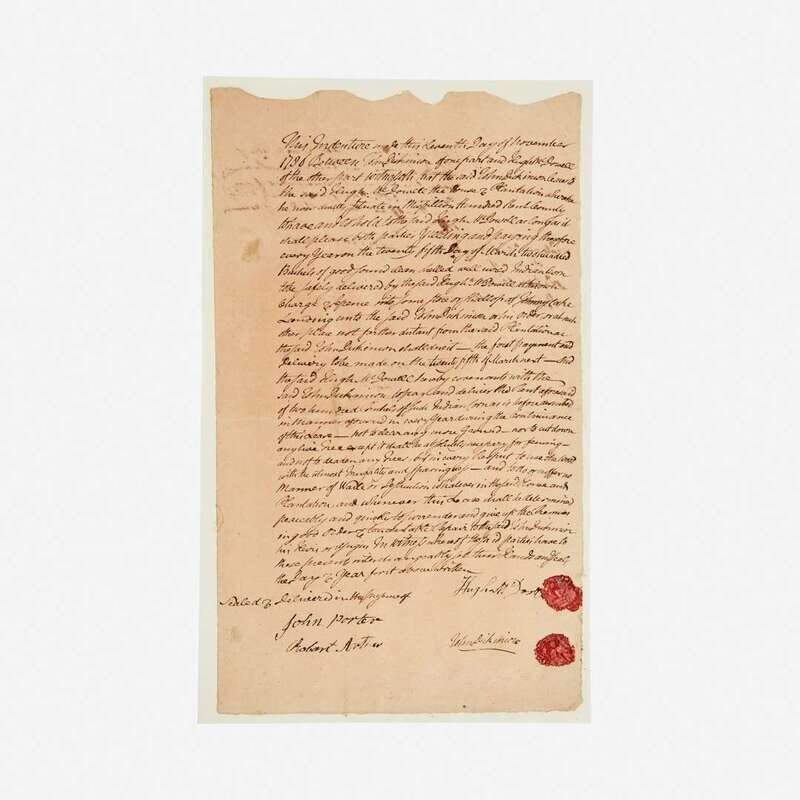 This Indenture made this Eleventh Day of November
1786 Between John Dickinson of one part and Hugh McDowell
of the other part witnesseth that the said John Dickinson leases to
the said Hugh McDowell the House & Plantation whereon
he now dwells situate in Mispillion Hundred Kent County
to have and to hold to the said Hugh McDowell as Long as it
shall please both parties Yielding and paying therefore
every Year on the twenty fifth Day of March two hundred
Bushels of good sound clean shelled well dried Indian Corn
to be safely delivered by the said Hugh McDowell at his own
Charge & Expense into some store or Shallop at Johnny Cake
Landing unto the said John Dickinson or his Order or at such
other place not further distant from the said Plantation as
the said John Dickinson shall direct — the first payment and
Delivery to be made on the twenty fifth of March next — And
the said Hugh McDowell hereby covenants with the
said John Dickinson to pay and deliver the Rent aforesaid
of two hundred bushels of such Indian Corn as is before described
in Manner aforesaid in every Year during the continuance
of this Lease — not to clear any more Ground — nor to cut down
any live Tree except it shall be absolutely necessary for fencing —
and not to deaden any Trees but in every Respect to use the Wood
with the utmost Frugality and sparingness — and not to suffer any
Manner of Waste or Destruction whatever in the said House and
Plantation and whenever this Lease shall be determined
peaceably and quietly to surrender and give up the Premises
in good Order & tenantable Repair to the said John Dickinson
his Heirs or Assigns In witness whereof the said parties have to
these presents interchangeably set their Hands and Seals
the Day & Year first above written
Sealed & Delivered in the presence of
Hugh Mc
John Porter
Robert
John Dickinson